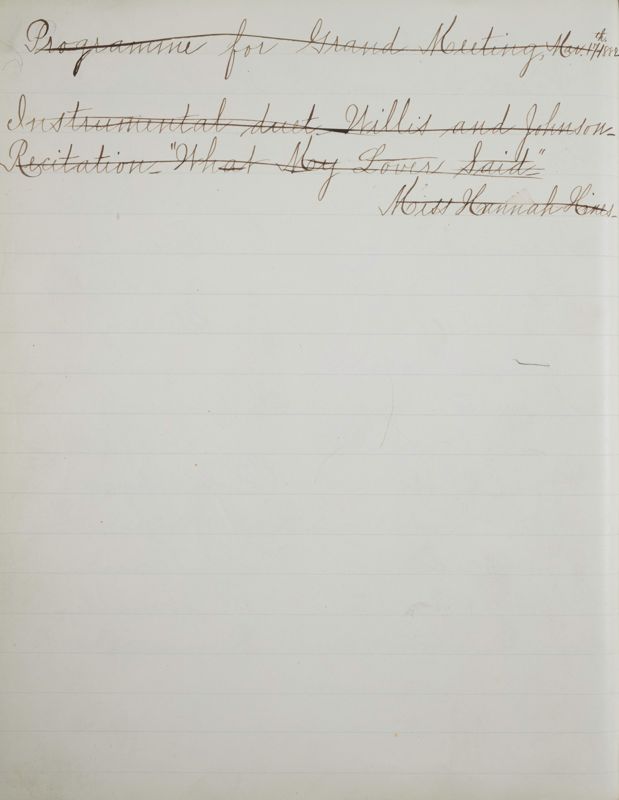 Programme for Grand Meeting, Mar. 17th
Instrumental duet. Willis and Johnson.
Recitation. "What My Lover Said"
Miss Hannah Hines.